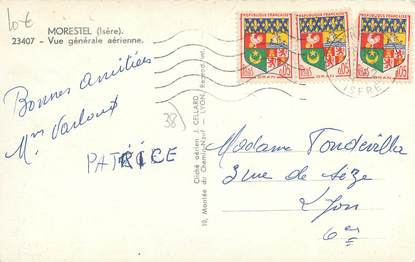 10 €
MORESTEL (Isère).
23407 - Vue générale aérienne.
Bonnes amitiés
Mme Varloud
PATRICE
38
Cliché aérien CELLARD
19, Montée du Chemin-Neuf - LYON
REPUBLIQUE FRANÇAISE
REPUBLIQUE FRANÇAISE
REPUBLIQUE FRANÇAISE
POSTES 0,05
ORAN
POSTES 0,05
ORAN
POSTES 0,05
ORAN
ISERE
Madame Tondevilla
3 rue de Sèze
Lyon
6em